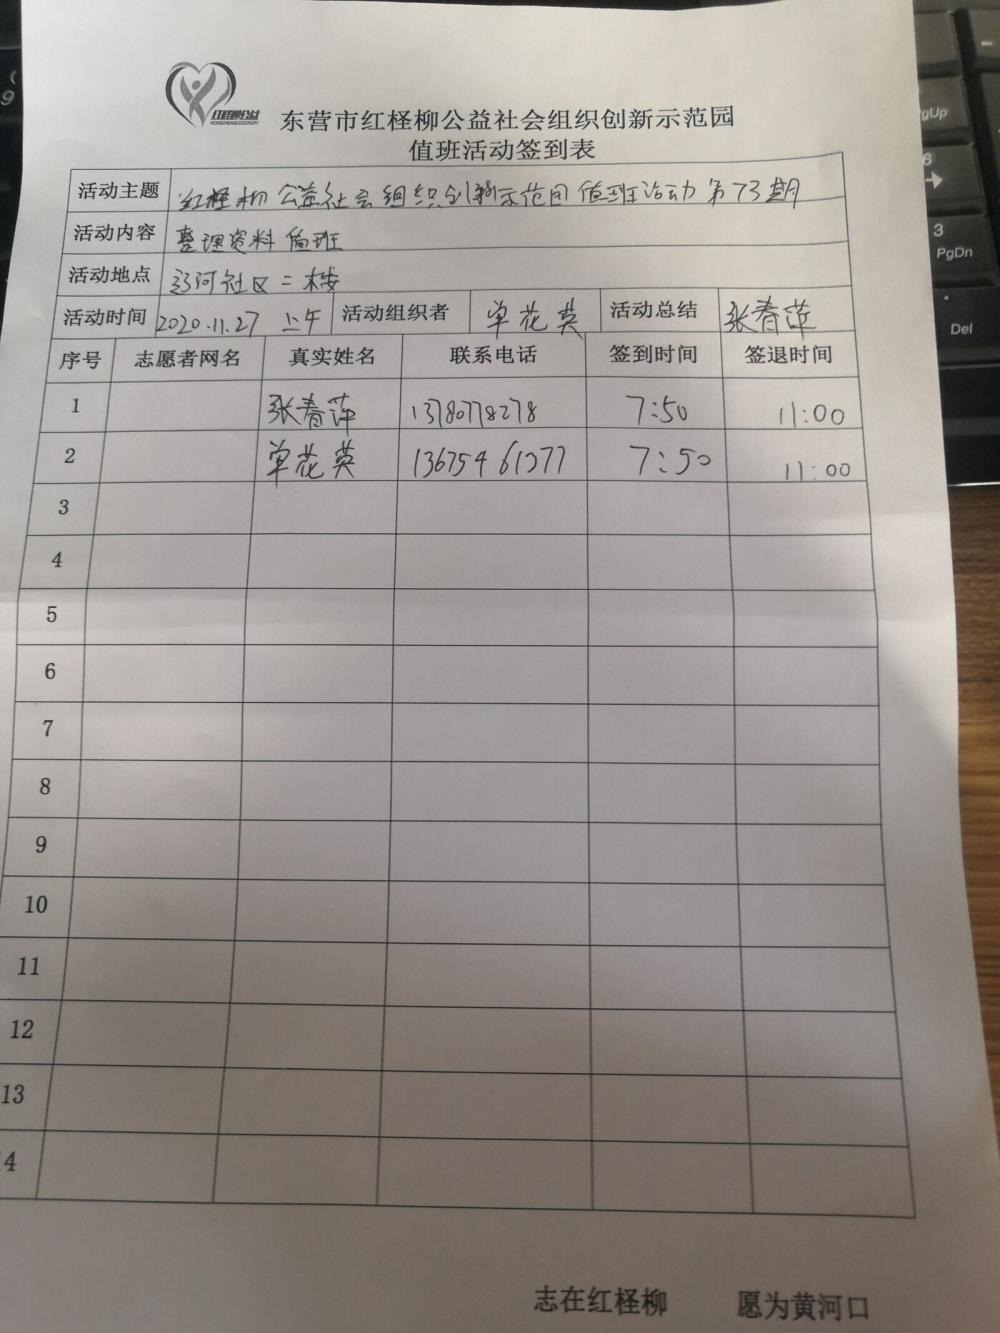 红柽柳公益
东营市红柽柳公益社会组织创新示范园
值班活动签到表
活动主题 红柽柳公益社会组织创新示范园值班活动第73期
活动内容 整理资料 值班
活动地点 河社区二楼
活动时间 2020.11.27 上午 活动组织者 单花英 活动总结 张春萍
序号 志愿者网名 真实姓名 联系电话 签到时间 签退时间
1 张春萍 13780778278 7:50 11:00
2 单花英 7:50 11:00
3
4
5
6
7
8
9
10
11
12
13
14
志在红柽柳 愿为黄河口
9
PgUp
6
3
PgDn
Del